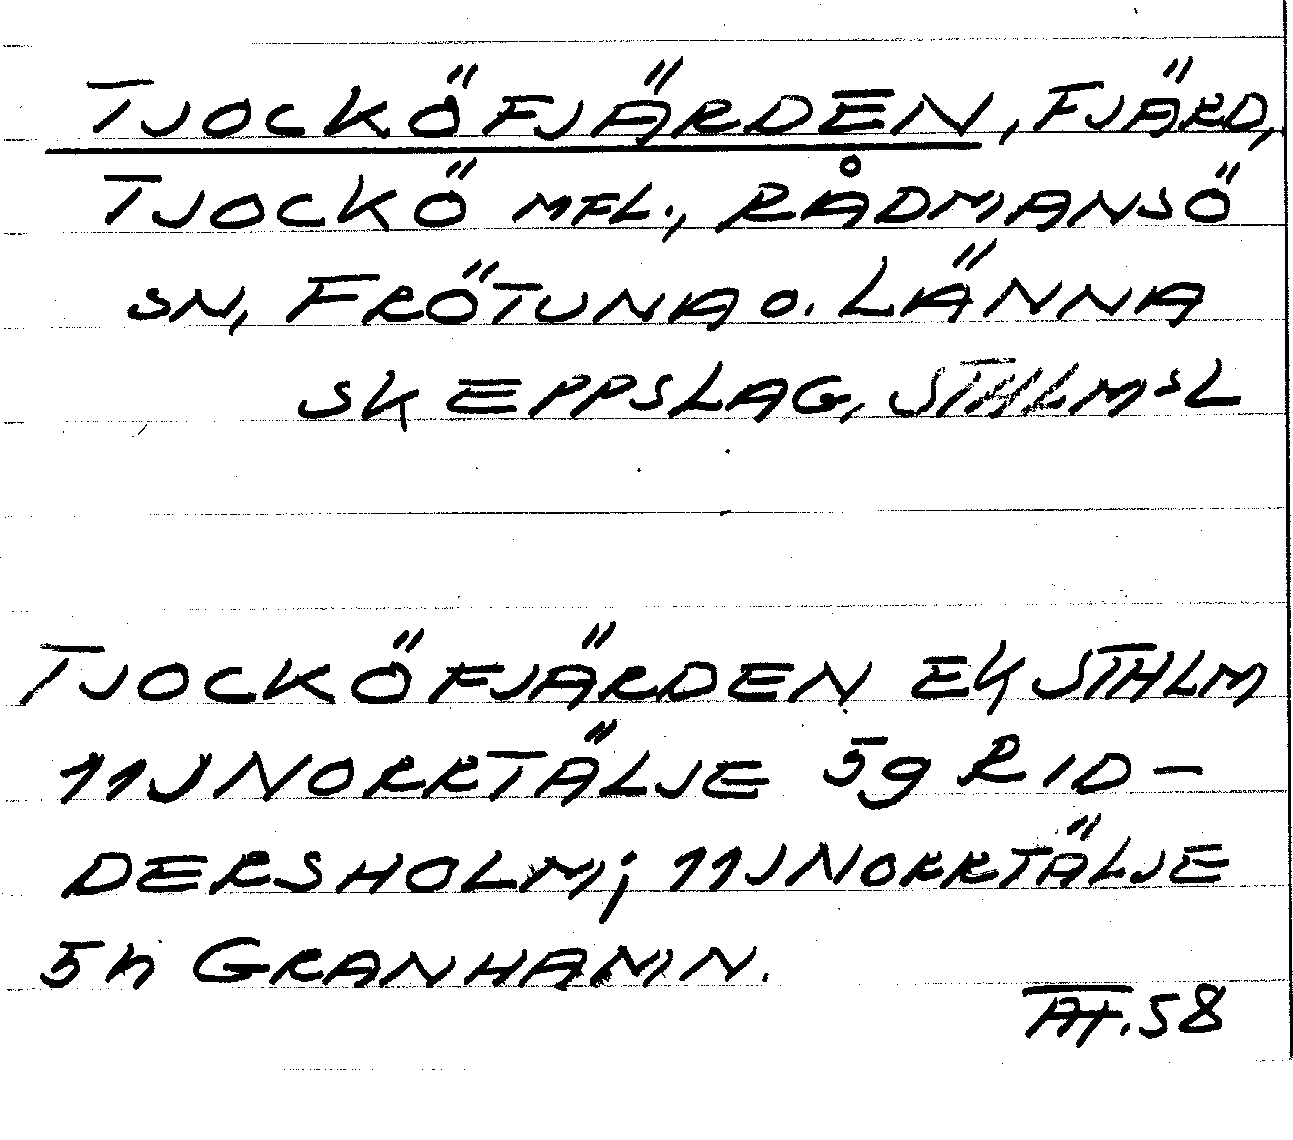 TJOCKÖFJÄRDEN, FJÄRD,
TJOCKÖ MFL., RÅDMANSÖ
SN, FRÖTUNA O. LÄNNA
SKEPPSLAG, STHLMSL
TJOCKÖFJÄRDEN EK STHLM
11J NORRTÄLJE 5g RID-
DERSHOLM; 11J NORRTÄLJE
5h GRANHAMN.